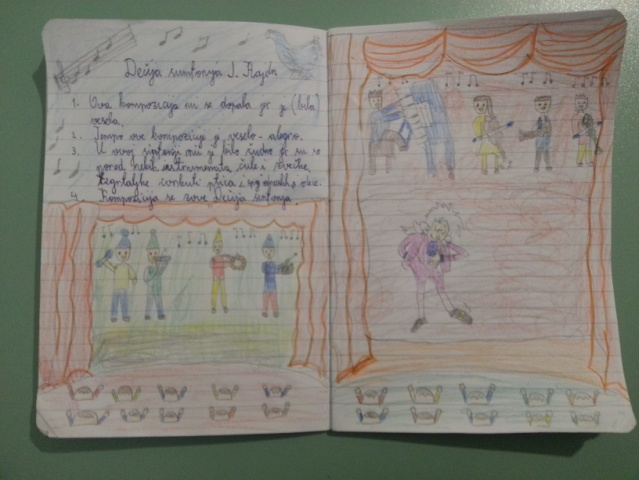 Dečija simfonija J. Hajdn
1. Ova kompozicija mi se dopala jer je (bila)
vesela.
2. Tempo ove kompozicije je veselo - alegro.
3. U ovoj simfoniji mi je bilo čudno što su se
pored nekih instrumenata čule i zvečke,
čegrtaljke, cvrkut ptica i
4. Kompozicija se zove Dečija simfonija.